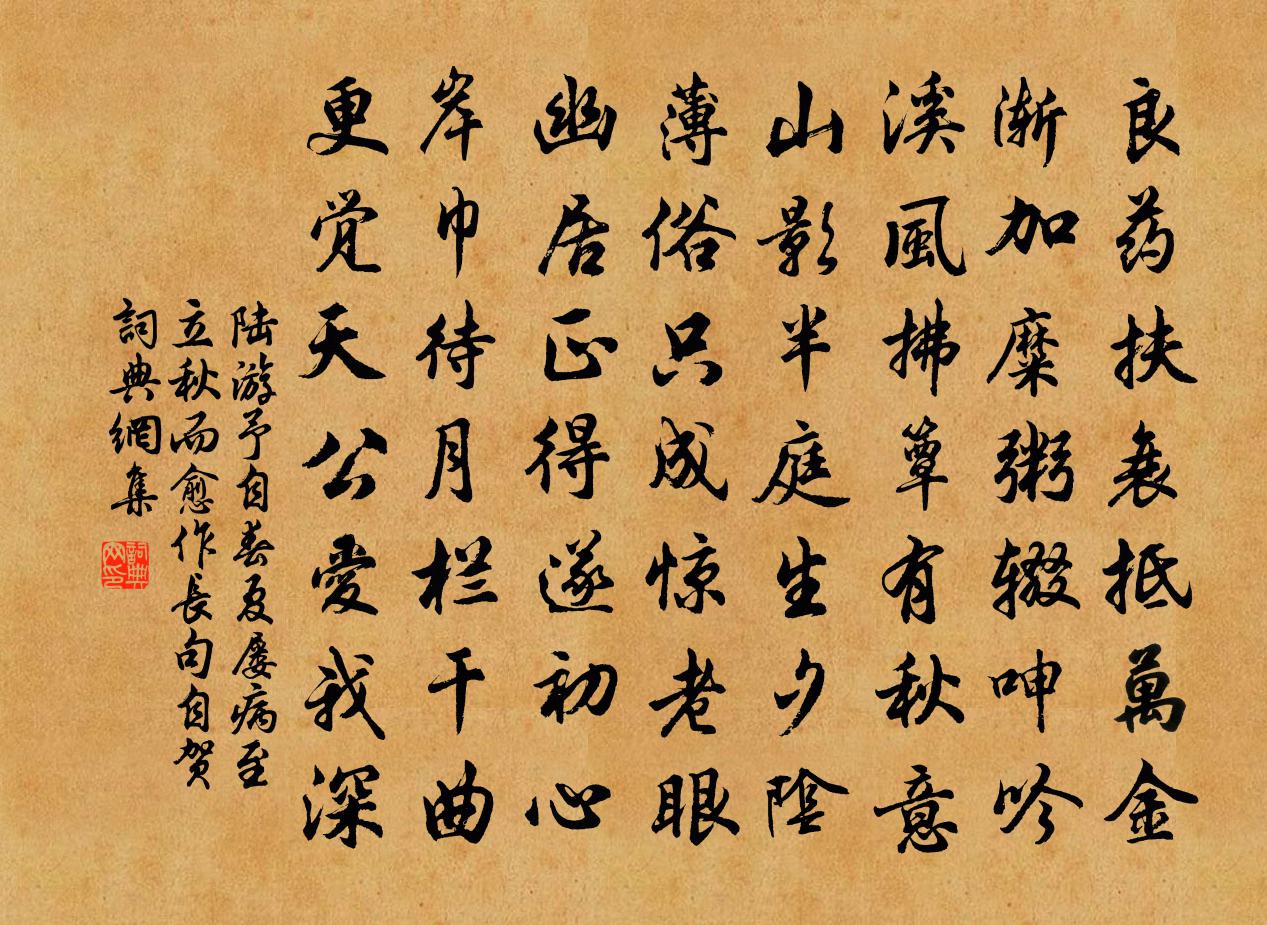 良药扶衰抵萬金
渐加糜粥辍呻吟
溪風拂簟有秋意
山影半庭生夕陰
薄俗只成惊老眼
幽居正得遂初心
岸巾待月栏干曲
更觉天公愛我深
陆游予自春夏屡病至
立秋而愈作長句自贺
詞典網集
詞典
网印